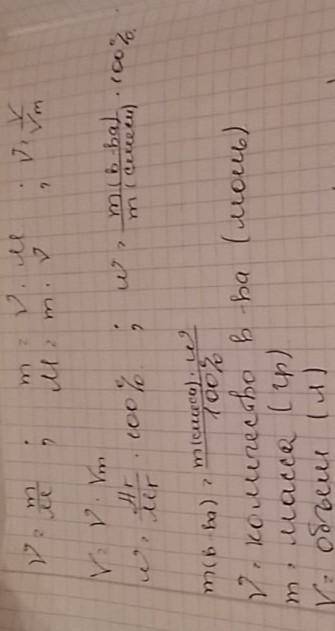 ν = m/M ; m = ν · M
M = m · ν ; ν = V/Vm
V = ν · Vm
w = Ar/Mr · 100% ; w = m(в-ва)/m(смеси) · 100%.
m(в-ва) = m(смеси) · w/100%
ν = количество в-ва (моль)
m = масса (гр)
V = объем (л)